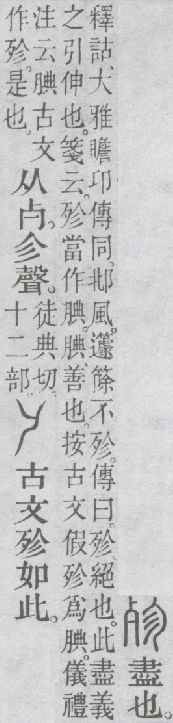 盡也。
釋詁、大雅瞻卬傳同。邶風。籧篨不殄。傳曰。殄、絕也。此盡義
之引伸也。箋云。殄當作腆。腆、善也。按古文假殄爲腆。儀禮
注云。腆古文
作殄。是也。
从歺。㐱聲。
徒典切。
十二部。
古文殄如此。